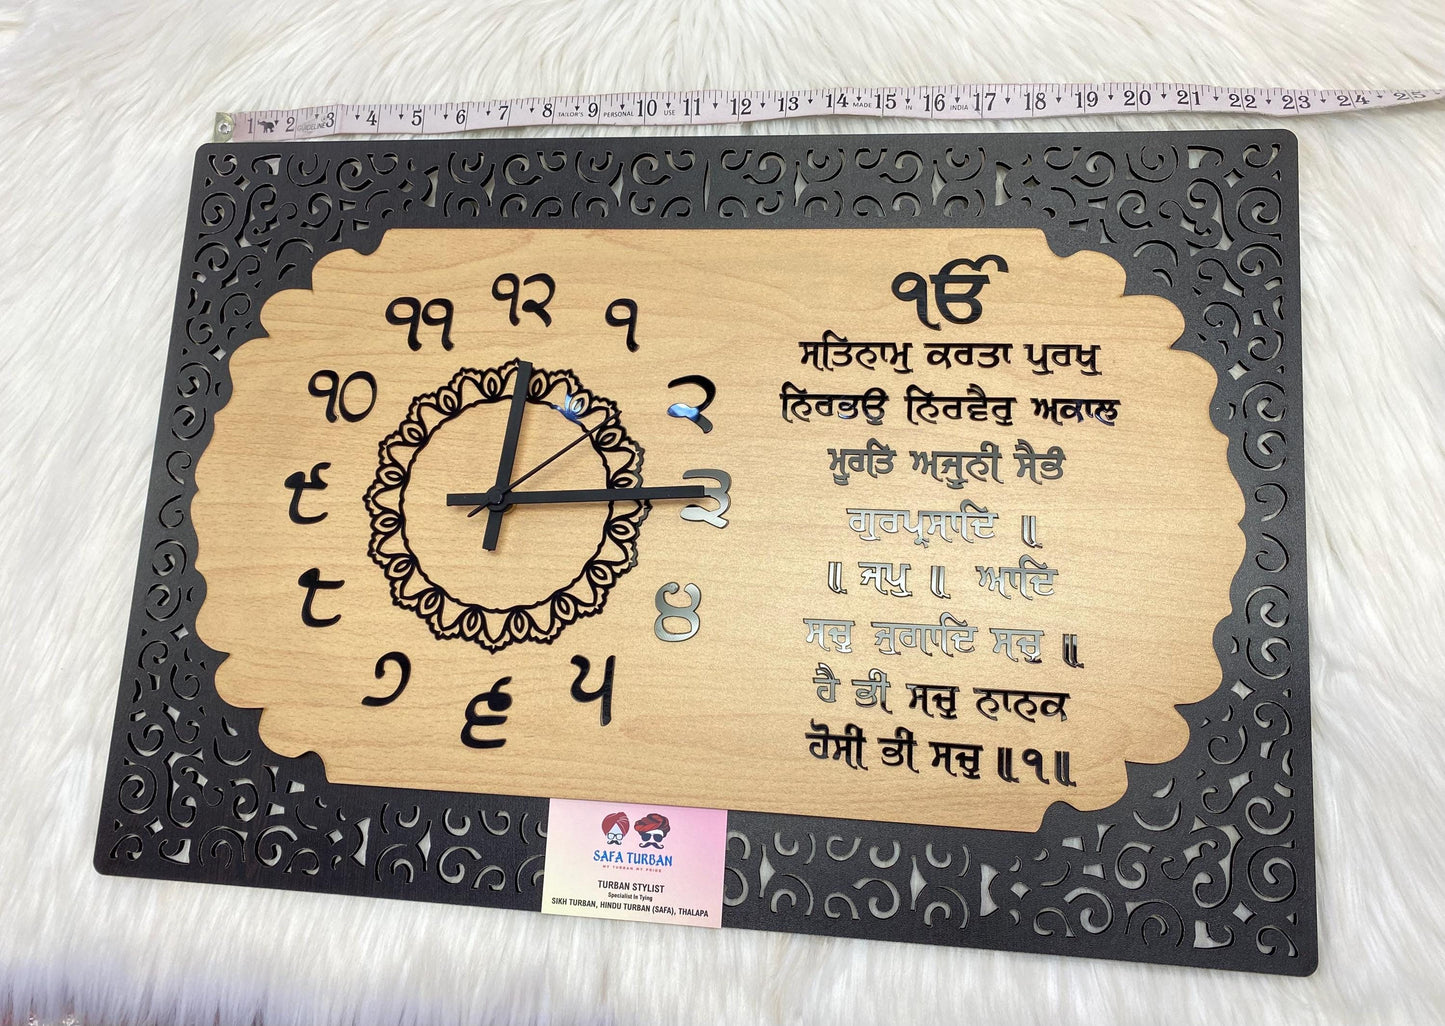 1 2 GUIDELINE 3 4 5 6 7 8 TAILOR'S 9 PERSONAL 10 USE 11 12 13 14 MADE 15 IN 16 INDIA 17 18 19 20 21 22 23 24 25
੧੨
੧
੨
੩
੪
੫
੬
੭
੮
੯
੧੦
੧੧
ੴ
ਸਤਿਨਾਮੁ ਕਰਤਾ ਪੁਰਖੁ
ਨਿਰਭਉ ਨਿਰਵੈਰੁ ਅਕਾਲ
ਮੂਰਤਿ ਅਜੂਨੀ ਸੈਭੰ
ਗੁਰਪ੍ਰਸਾਦਿ ॥
॥ ਜਪੁ ॥ ਆਦਿ
ਸਚੁ ਜੁਗਾਦਿ ਸਚੁ ॥
ਹੈ ਭੀ ਸਚੁ ਨਾਨਕ
ਹੋਸੀ ਭੀ ਸਚੁ ॥੧॥
SAFA TURBAN
MY TURBAN MY PRIDE
TURBAN STYLIST
Specialist In Tying
SIKH TURBAN, HINDU TURBAN (SAFA), THALAPA